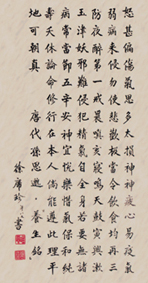 怒甚偏傷氣思多太損神神疲心易役氣
弱病来侵勿使悲歡極當令飲食均再三
防夜醉第一戒晨嗔亥寢鳴天鼓寅興漱
玉津妖邪難侵犯精氣自全身若要無諸
病常當節五辛安神宜悅樂惜氣保和純
壽夭休論命修行在本人倘能遵此理平
地可朝真 唐代孫思邈養生銘
徐 玲 書